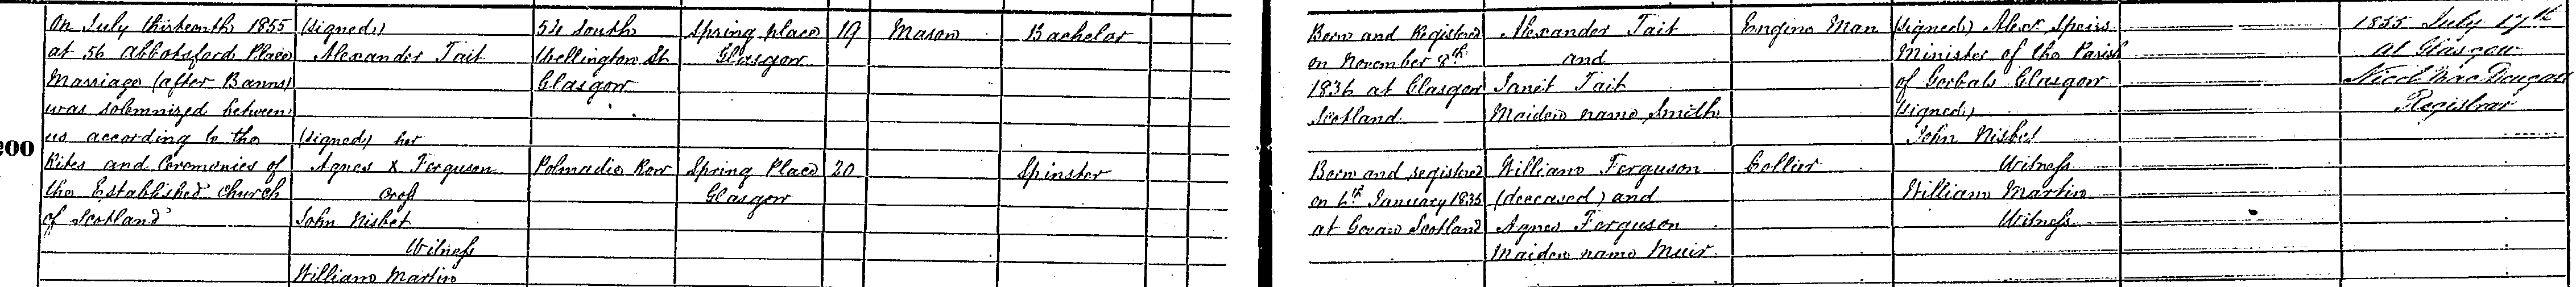 On July thirteenth 1855
at 56 Abbotsford Place
Marriage (after Banns)
was solemnized between
us according to the
Rites and Ceremonies of
the Established Church
of Scotland
200
(signed)
Alexander Tait
(signed) her
Agnes X Ferguson
Cross
John Nisbet
Witness
William Martin
54 South
Wellington St
Glasgow
Polmadie Row
Spring place
Glasgow
Spring Place
Glasgow
19
20
Mason
Bachelor
Spinster
Born and Registered
on November 8th
1836 at Glasgow
Scotland.
Born and registered
on 6th January 1835
at Govan Scotland
Alexander Tait
and
Janet Tait
Maiden name Smith
William Ferguson
(deceased) and
Agnes Ferguson
Maiden name Muir.
Engine Man
Collier
(signed) Alexr Speirs
Minister of the Parish
of Gorbals Glasgow
(signed)
John Nisbet
Witness
William Martin
Witness
1855 July 17th
at Glasgow
Nicol MacDougall
Registrar